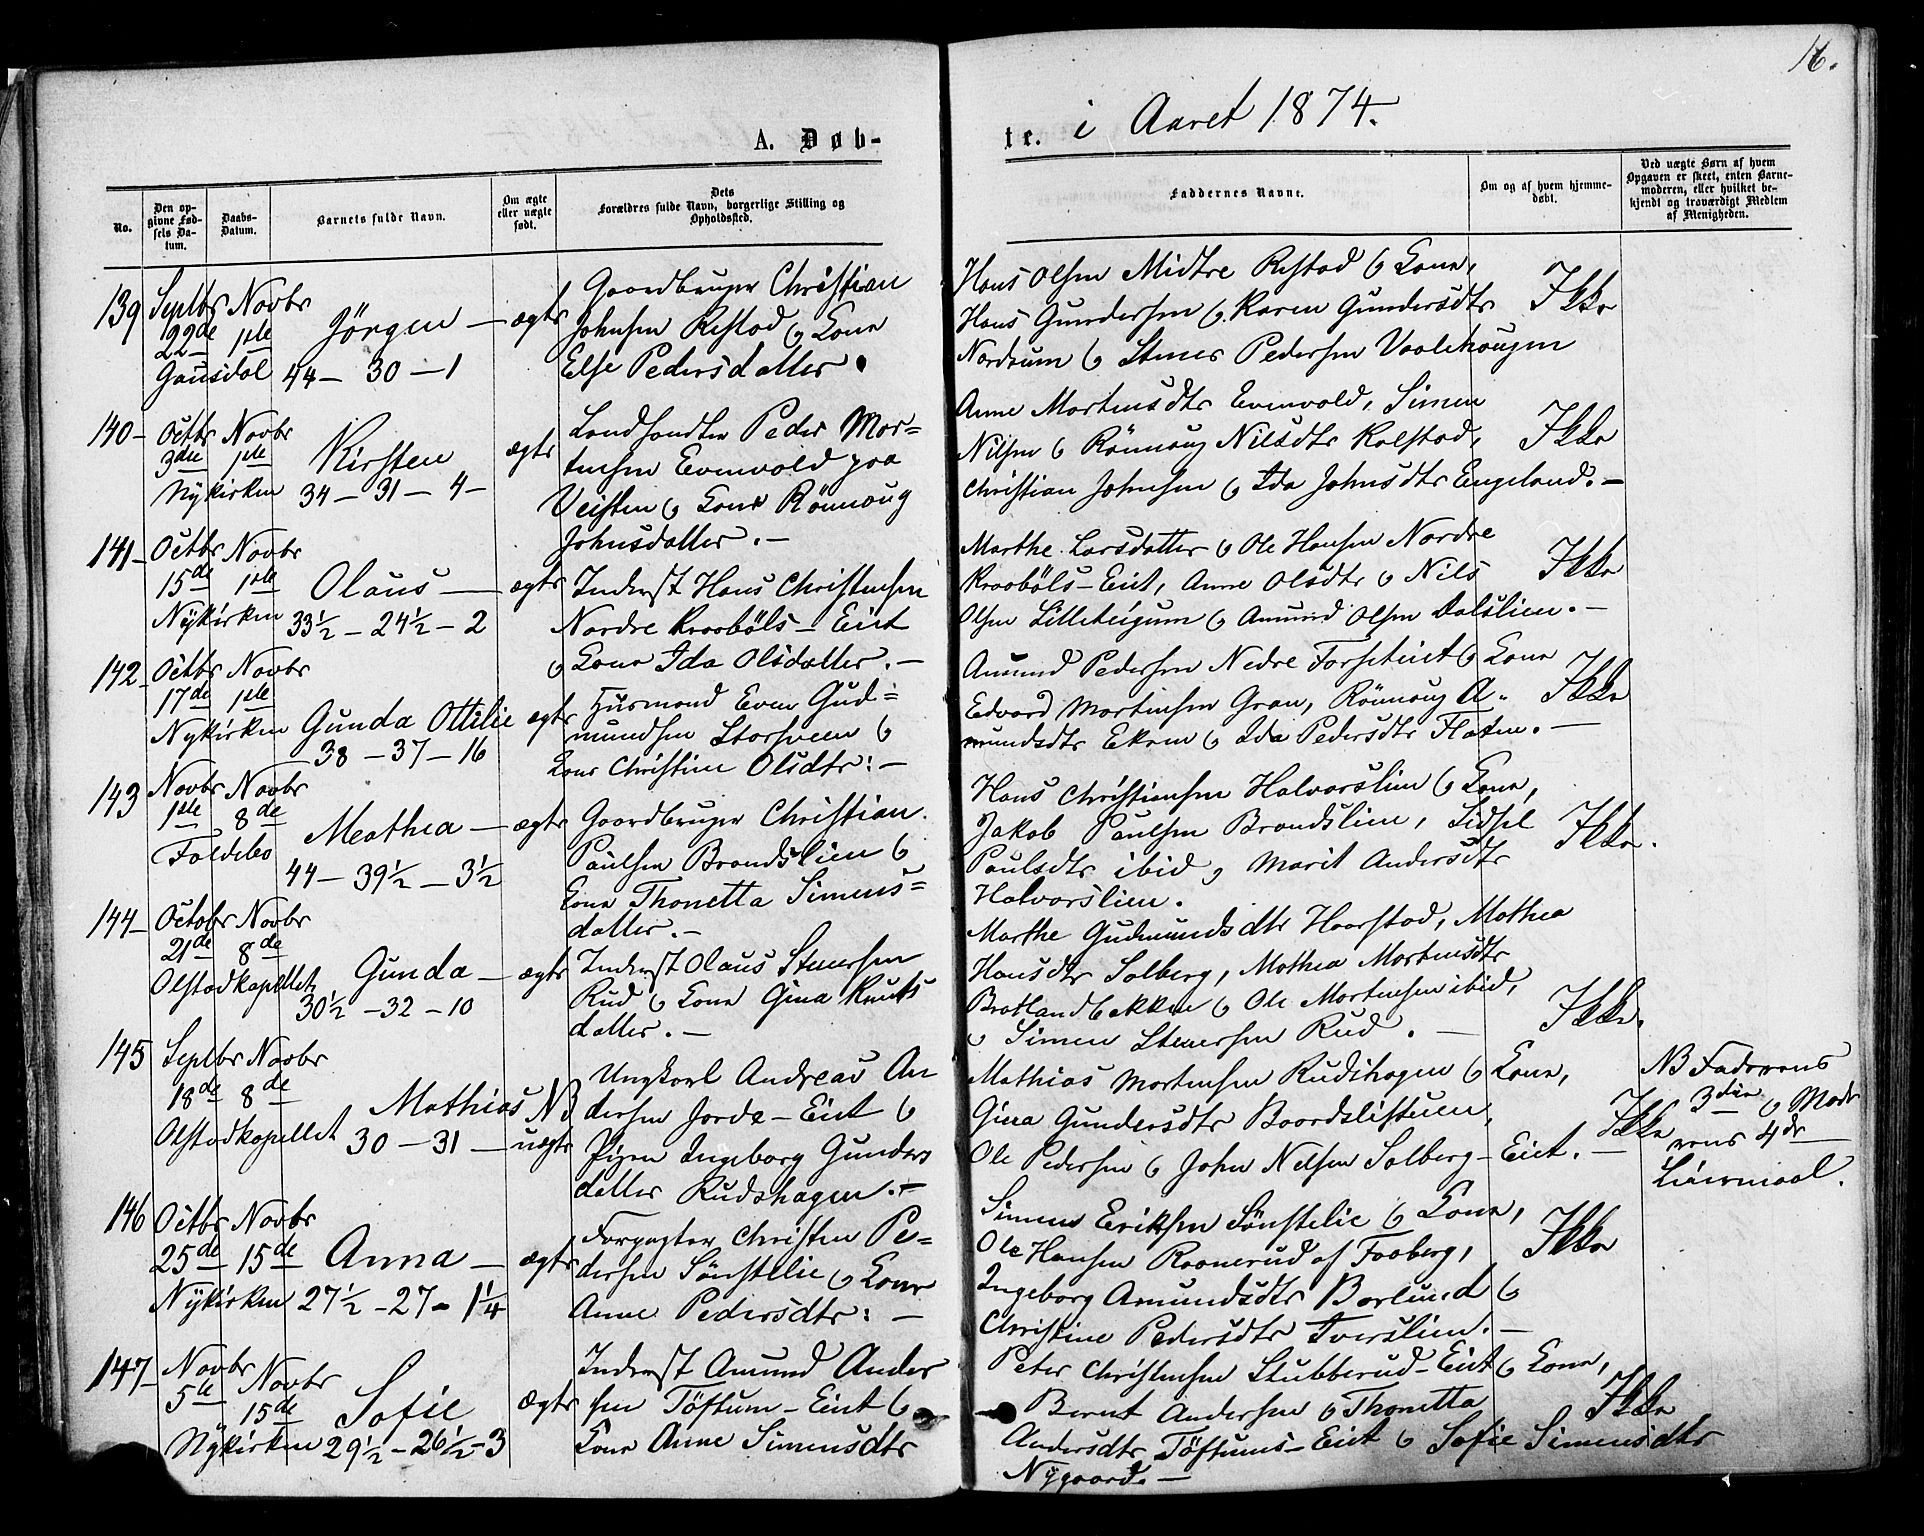 16.
A. Døb-
te. i Aaret 1874.
No.
Den op-
givne Fød-
sels Da-
tum.
Daabs-
Datum.
Barnets fulde Navn.
Om ægte
eller uægte
født.
Dets
Forældres fulde Navn, borgerlige Stilling og
Opholdssted.
Faddernes Navne.
Om og af hvem hjemme-
døbt.
Ved uægte Børn af hvem
Opgaven er skeet, enten Barne-
moderen, eller hvilket be-
kjendt og troværdigt Medlem
af Menigheden.
139 Septbr Novbr
22de 1ste
Gausdal
Jörgen — ægte
44 — 30 — 1
Gaardbruger Christian
Johnsen Restad og Kone
Else Pedersdatter.
Hans Olsen Midtre Restad og Kone,
Hans Gundersen og Karen Gundersdtr
Nordrum og Stener Pedersen Vaalehaugen
Ikke
140 — Octbr Novbr
3die 1ste
Nykirken
Kirsten ægte
34 — 31 — 4 —
Landhandler Peder Mor-
tensen Evenvold paa
Veisten og Kone Rönnoug
Johnsdatter. —
Anne Mortensdtr Evenvold, Simen
Nilsen og Rönnoug Nilsdtr Kalstad,
Christian Johnsen og Ida Johnsdtr Engeland. —
Ikke
141 — Octbr Novbr
15de 1ste
Nykirken
Olaus — ægte
33½ — 24½ — 2
Inderst Hans Christensen
Nordre Kraaböls — Eiet
og Kone Ida Olsdatter. —
Marthe Larsdatter og Ole Hansen Nordre
Kraaböls — Eiet, Anne Olsdtr og Nils
Olsen Lilleteigum og Amund Olsen Dalslien. —
Ikke
142 — Octbr Novbr
17de 1ste
Nykirken
Gunda Ottilie ægte
38 — 37 — 16
Husmand Even Gud-
mundsen Storsveen og
Kone Christine Olsdtr: —
Amund Pedersen Nedre Forseteiet og Kone
Edvard Martinsen Gran, Rönnoug A-
mundsdtr Ekren og Ida Pedersdtr Flaten. —
Ikke
143 Novbr Novbr
1ste 8de
Foldebo
Mathea — ægte
44 — 39½ — 3½
Gaardbruger Christian
Paulsen Brandslien og
Kone Thonetta Simens-
datter. —
Hans Christiansen Halvorslien og Kone,
Jakob Paulsen Brandslien, Sidsel
Paulsdtr ibid og Marit Andersdtr
Halvorslien.
Ikke.
144 — Octobr Novbr
21de 8de
Olstadkapellet
Gunda — ægte
30½ — 32 — 10
Inderst Olaus Stenersen
Rud og Kone Gina Knuts
datter. —
Marthe Gudmundsdtr Haarstad, Mathea
Hansdtr Solberg, Mathea Mortensdtr
Bratlandbakken og Ole Mortensen ibid,
og Simen Stenersen Rud. —
Ikke.
145 Septbr Novbr
18de 8de
Olstadkapellet
Mathias NB
30 — 31 — uægte
Ungkarl Andreas An
dersen Jorde — Eiet og
Pigen Ingeborg Gunders
datter Rudshagen. —
Mathias Mortensen Rudshagen og Kone,
Gina Gundersdtr Baardslistuen,
Ole Pedersen og John Nelsen Solberg — Eiet. —
Ikke
NB Faderens
3die og Mode
rens 4de
Leiermaal.
146 Octbr Novbr
25de 15de
Nykirken
Anna — ægte
27½ — 27 — 1¼
Forpagter Christen Pe-
dersen Sönstelie og Kone
Anne Pedersdtr: —
Simen Eriksen Sönstelie og Kone,
Ole Hansen Raanerud af Faaberg,
Ingeborg Amundsdtr Borlund og
Christine Pedersdtr Tverslien. —
Ikke
147 — Novbr Novbr
5te 15de
Nykirken
Sofie ægte
29½ — 26½ — 3
Inderst Amund Ander
sen Töftum — Eiet og
Kone Anne Simensdtr
Peter Christensen Stubberud — Eiet og Kone,
Bernt Andersen og Thonetta
Andersdtr Töftums — Eiet og Sofie Simensdtr
Nygaard. —
Ikke